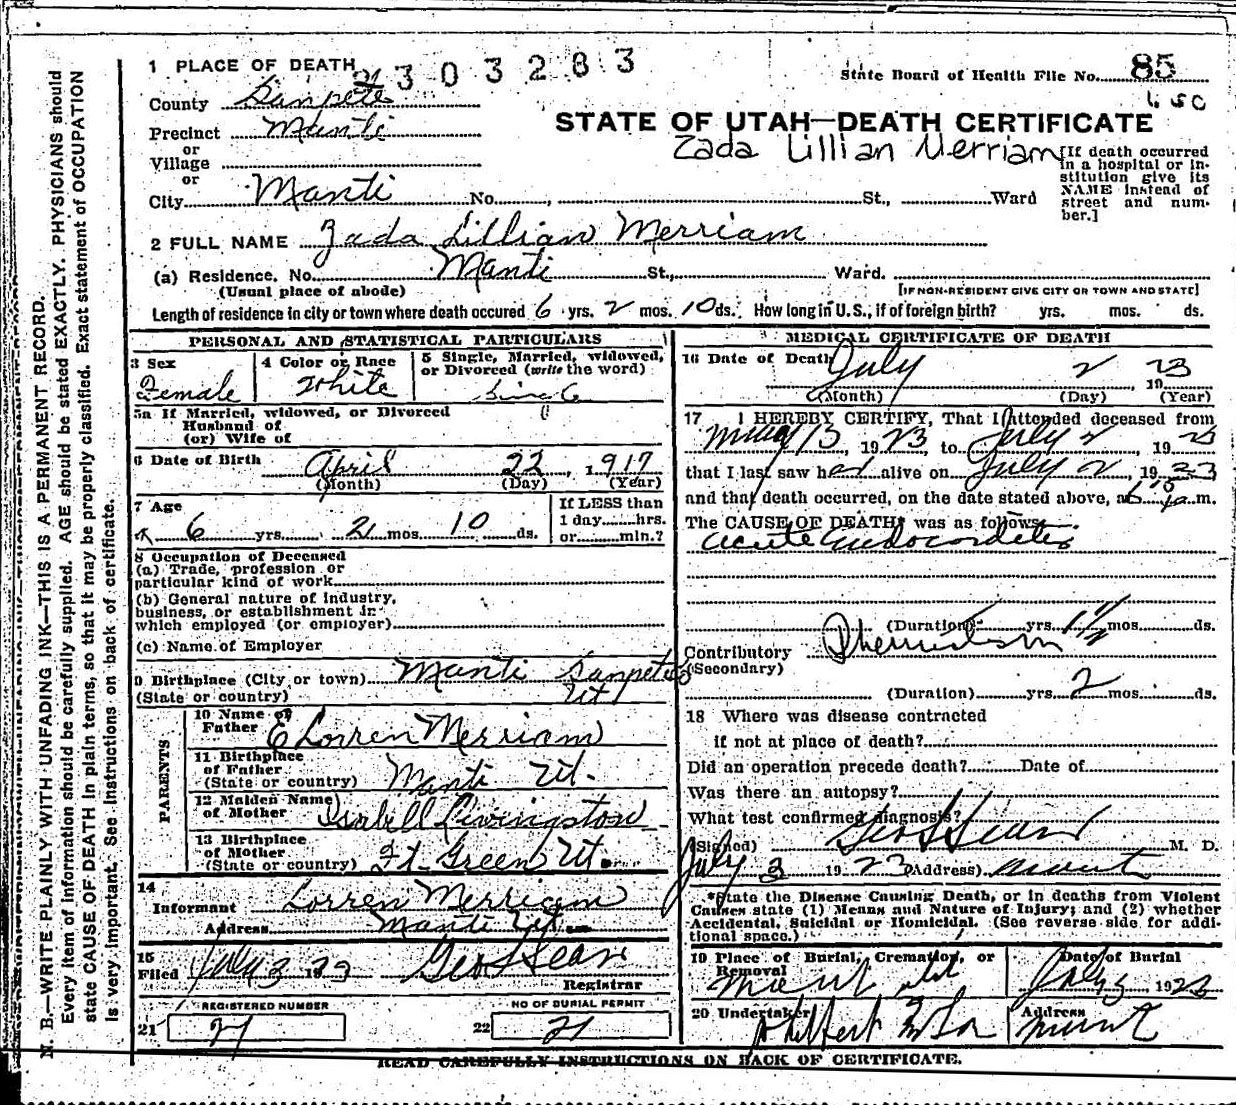 1 PLACE OF DEATH
21 303283
State Board of Health File No. 85
County Sanpete
Precinct Manti
or
Village
or
City Manti No. , St., Ward
STATE OF UTAH—DEATH CERTIFICATE
Zada Lillian Merriam
[If death occurred
in a hospital or in-
stitution give its
NAME instead of
street and num-
ber.]
2 FULL NAME Zada Lillian Merriam
(a) Residence. No. Manti St., Ward.
(Usual place of abode) [IF NON-RESIDENT GIVE CITY OR TOWN AND STATE]
Length of residence in city or town where death occured 6 yrs. 2 mos. 10 ds. How long in U.S., if of foreign birth? yrs. mos. ds.
PERSONAL AND STATISTICAL PARTICULARS
3 Sex
Female
4 Color or Race
White
5 Single, Married, widowed,
or Divorced (write the word)
5a If Married, widowed, or Divorced
Husband of
(or) Wife of
6 Date of Birth April 22, 1917
(Month) (Day) (Year)
7 Age
6 yrs. 2 mos. 10 ds.
If LESS than
1 day hrs.
or min.?
8 Occupation of Deceased
(a) Trade, profession or
particular kind of work
(b) General nature of industry,
business, or establishment in
which employed (or employer)
(c) Name of Employer
9 Birthplace (City or town) Manti Sanpete
(State or country) Ut
PARENTS
10 Name of
Father E Lorren Merriam
11 Birthplace
of Father
(State or country) Manti Ut.
12 Maiden Name
of Mother Isabell Livingston
13 Birthplace
of Mother
(State or country) Ft. Green Ut.
14
Informant Lorren Merriam
Address Manti Ut.
15
Filed July 3 1923 Geo L Sears
Registrar
REGISTERED NUMBER
21 21
NO OF BURIAL PERMIT
22 21
MEDICAL CERTIFICATE OF DEATH
16 Date of Death July 2, 1923
(Month) (Day) (Year)
17 I HEREBY CERTIFY, That I attended deceased from
May 13, 1923 to July 2, 1923
that I last saw her alive on July 2, 1923
and that death occurred, on the date stated above, at m.
The CAUSE OF DEATH was as follows:
Acute Endocarditis
(Duration) yrs. 1 1/2 mos. ds.
Contributory Rheumatism
(Secondary)
(Duration) yrs. 2 mos. ds.
18 Where was disease contracted
if not at place of death?
Did an operation precede death? Date of
Was there an autopsy?
What test confirmed diagnosis?
(Signed) Geo L Sears M. D.
July 3 1923 (Address) Manti
*State the Disease Causing Death, or in deaths from Violent
Causes state (1) Means and Nature of Injury; and (2) whether
Accidental, Suicidal or Homicidal. (See reverse side for addi-
tional space.)
19 Place of Burial, Cremation, or
Removal
Manti Ut
Date of Burial
July 3 1923
20 Undertaker
Address
Manti
READ CAREFULLY INSTRUCTIONS ON BACK OF CERTIFICATE.
N. B.—WRITE PLAINLY WITH UNFADING INK—THIS IS A PERMANENT RECORD.
Every item of information should be carefully supplied. AGE should be stated EXACTLY. PHYSICIANS should
state CAUSE OF DEATH in plain terms, so that it may be properly classified. Exact statement of OCCUPATION
is very important. See instructions on back of certificate.